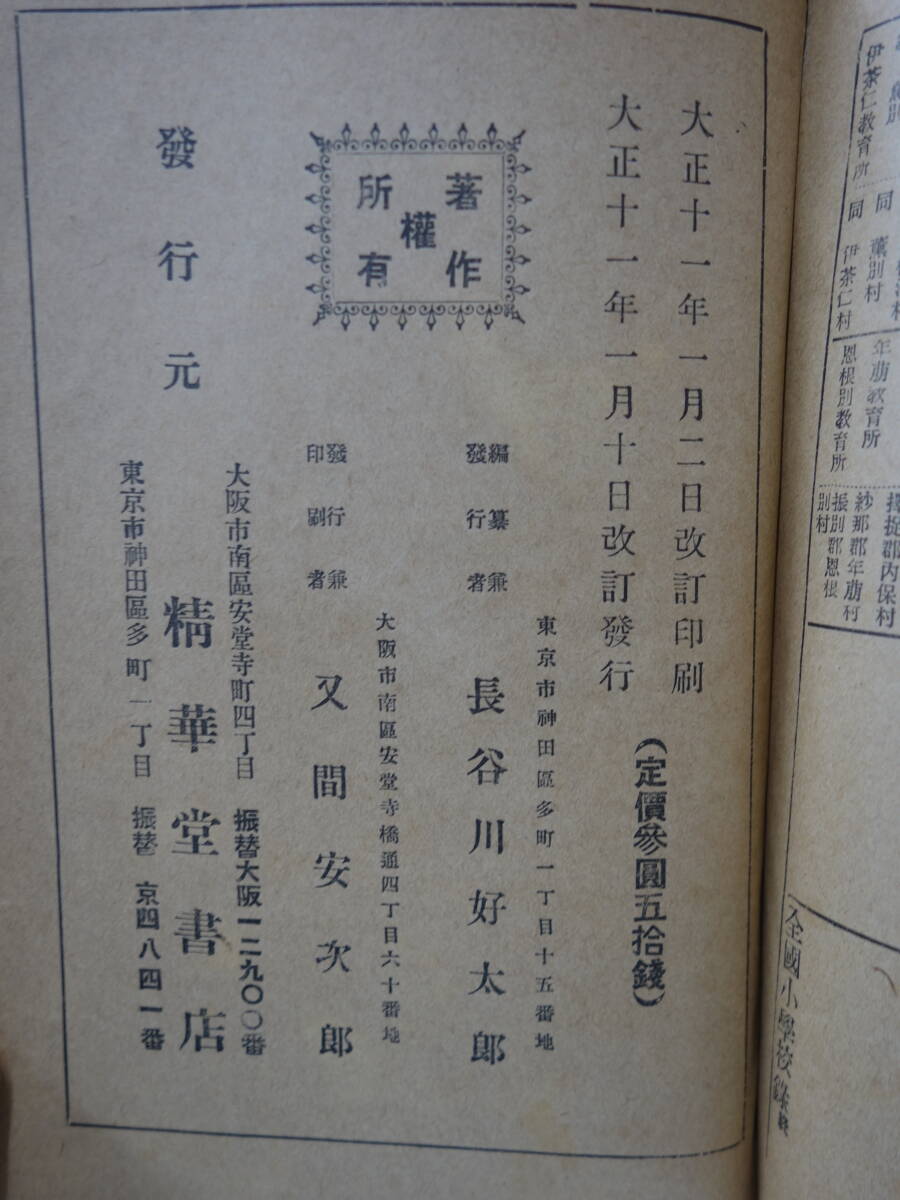 伊茶仁教育所
同 薫別村
同 伊茶仁村
年萠教育所
恩根別教育所
擇捉郡內保村
紗那郡年萠村
振別郡恩根
別村
全國小學校錄終
大正十一年一月二日改訂印刷
大正十一年一月十日改訂發行
(定價參圓五拾錢)
著作權所有
東京市神田區多町一丁目十五番地
編纂兼
發行者
長谷川好太郎
大阪市南區安堂寺橋通四丁目六十番地
發行兼
印刷者
又間安次郎
發行元
大阪市南區安堂寺町四丁目 振替大阪一二九〇〇番
精華堂書店
東京市神田區多町一丁目 振替 京四八四一番